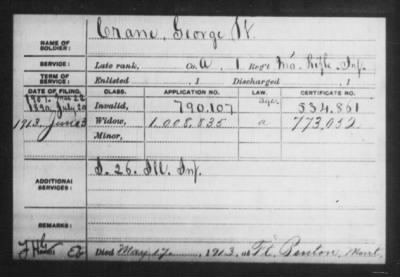 NAME OF SOLDIER: Crane, George W.
SERVICE: Late rank, Co. A, 1 Reg't Mo. Rifle. Inf.
TERM OF SERVICE: Enlisted , 1 Discharged , 1
DATE OF FILING. CLASS. APPLICATION NO. LAW. CERTIFICATE NO.
1907. Mar 22
1890 July 28 Invalid, 790.107 534.861
1913. June 3 Widow, 1.008.835 a 773,052
Minor,
ADDITIONAL SERVICES: I. 26. Ill. Inf.
REMARKS:
Died May 17, 1913, at Ft. Benton, Mont.